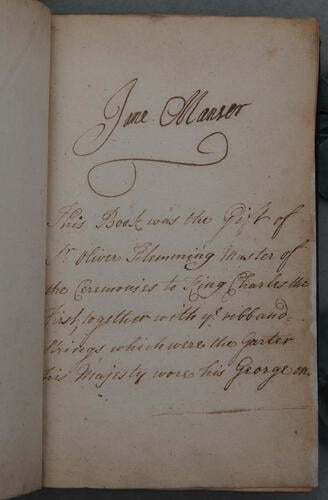 Jane Manser
This Book was the Gift of
Sr. Oliver Flemming Master of
the Ceremonies to King Charles the
First, together with ye. ribband-
strings which were the Garter
his Majesty wore his George on.